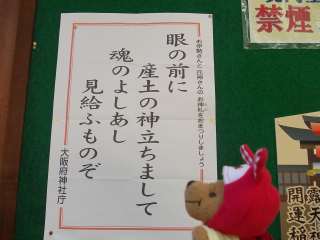 お伊勢さんと氏神さんのお神札をおまつりしましょう
眼の前に
産土の神立ちまして
魂のよしあし
見給ふものぞ
大阪府神社庁
禁煙
露天神
開運稲